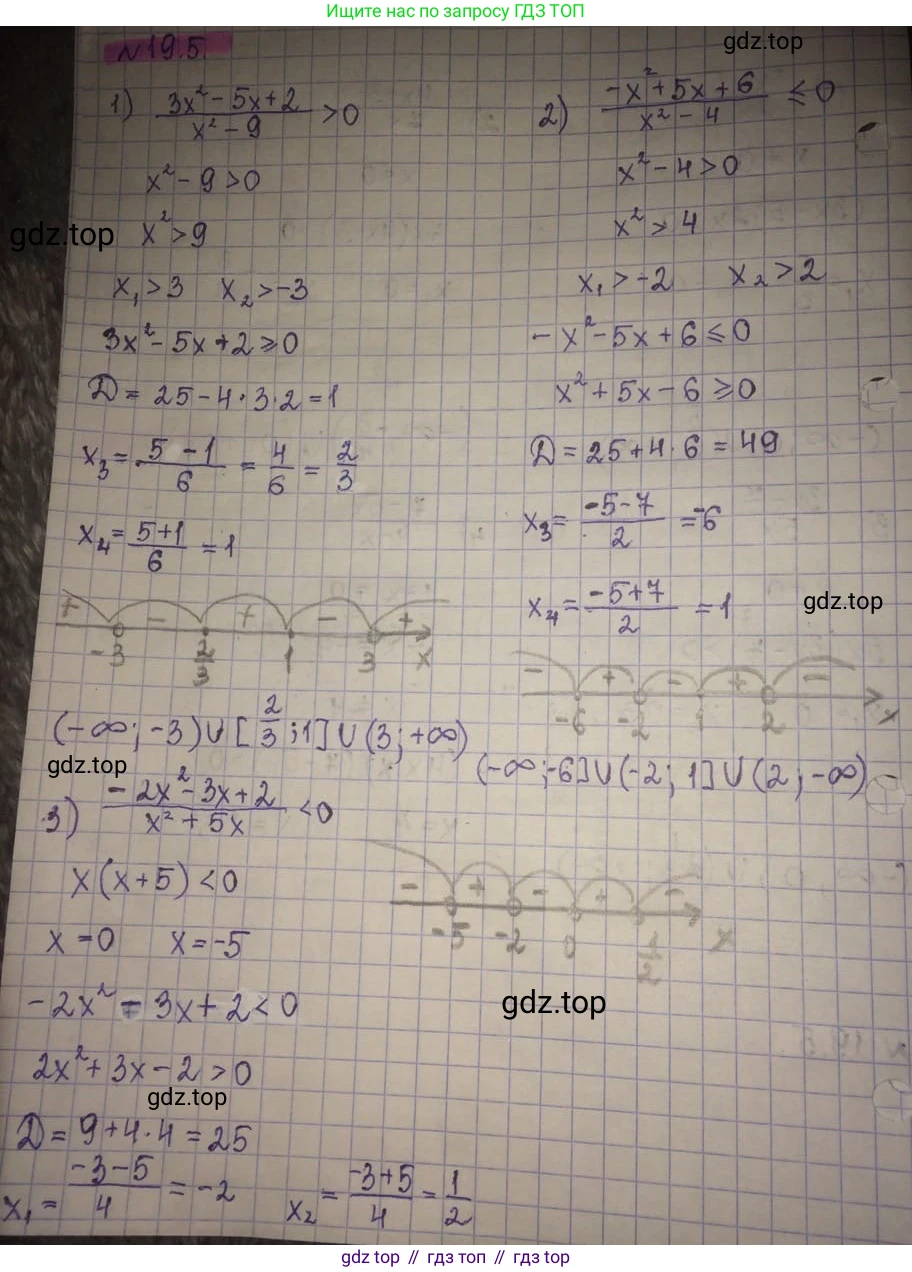 Ищите нас по запросу ГДЗ ТОП
gdz.top
№19.5.
1) (3x² - 5x + 2)/(x² - 9) > 0
x² - 9 > 0
gdz.top
x² > 9
x₁ > 3 x₂ > -3
3x² - 5x + 2 ≥ 0
D = 25 - 4 · 3 · 2 = 1
x₃ = (5 - 1)/6 = 4/6 = 2/3
x₄ = (5 + 1)/6 = 1
+ - + - +
-3 2/3 1 3 x
(-∞; -3) ∪ [2/3; 1] ∪ (3; +∞)
gdz.top
2) (-x² + 5x + 6)/(x² - 4) ≤ 0
x² - 4 > 0
x² > 4
x₁ > -2 x₂ > 2
-x² - 5x + 6 ≤ 0
x² + 5x - 6 ≥ 0
D = 25 + 4 · 6 = 49
x₃ = (-5 - 7)/2 = -6
x₄ = (-5 + 7)/2 = 1
gdz.top
- + - + -
-6 -2 1 2 x
(-∞; -6] ∪ (-2; 1] ∪ (2; -∞)
3) (-2x² - 3x + 2)/(x² + 5x) < 0
x(x + 5) < 0
x = 0 x = -5
-2x² - 3x + 2 < 0
2x² + 3x - 2 > 0
gdz.top
D = 9 + 4 · 4 = 25
x₁ = (-3 - 5)/4 = -2 x₂ = (-3 + 5)/4 = 1/2
- + - + -
-5 -2 0 1/2 x
gdz.top
gdz top // гдз топ // gdz top